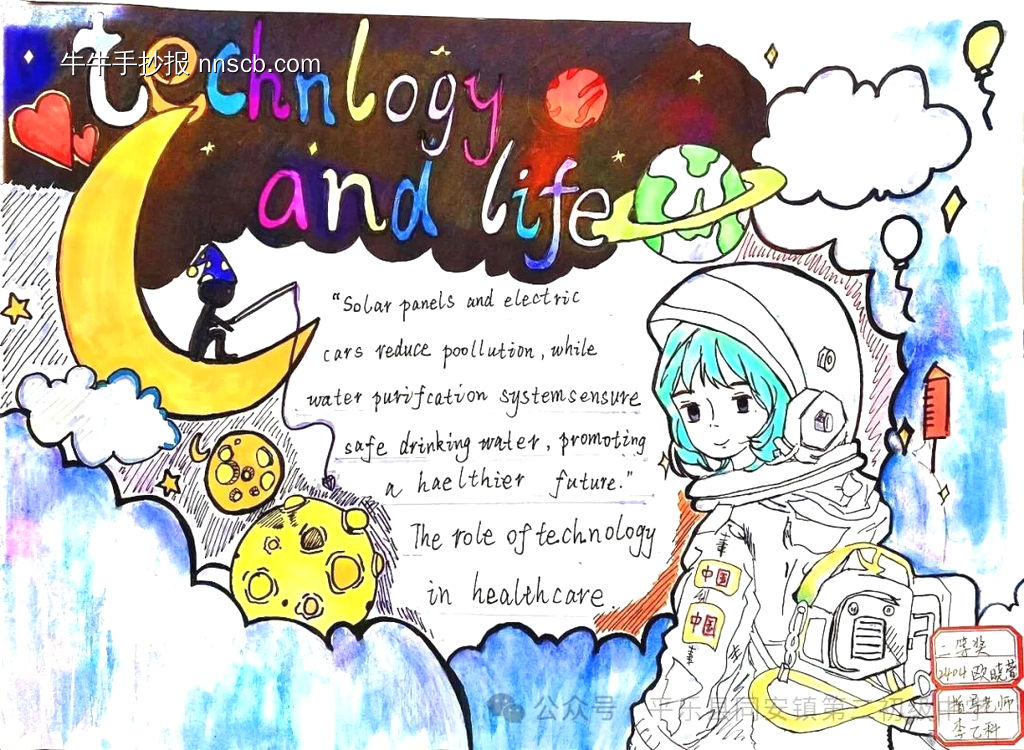 牛牛手抄报 nnscb.com
technlogy
and life
"Solar panels and electric
cars reduce poollution, while
water purifcation systemsensure
safe drinking water, promoting
a haelthier future."
The role of technology
in healthcare.
中国
中国
二等奖
2404 欧晓萱
指导老师
李乙科
公众号 平乐县同安镇第二初级中学